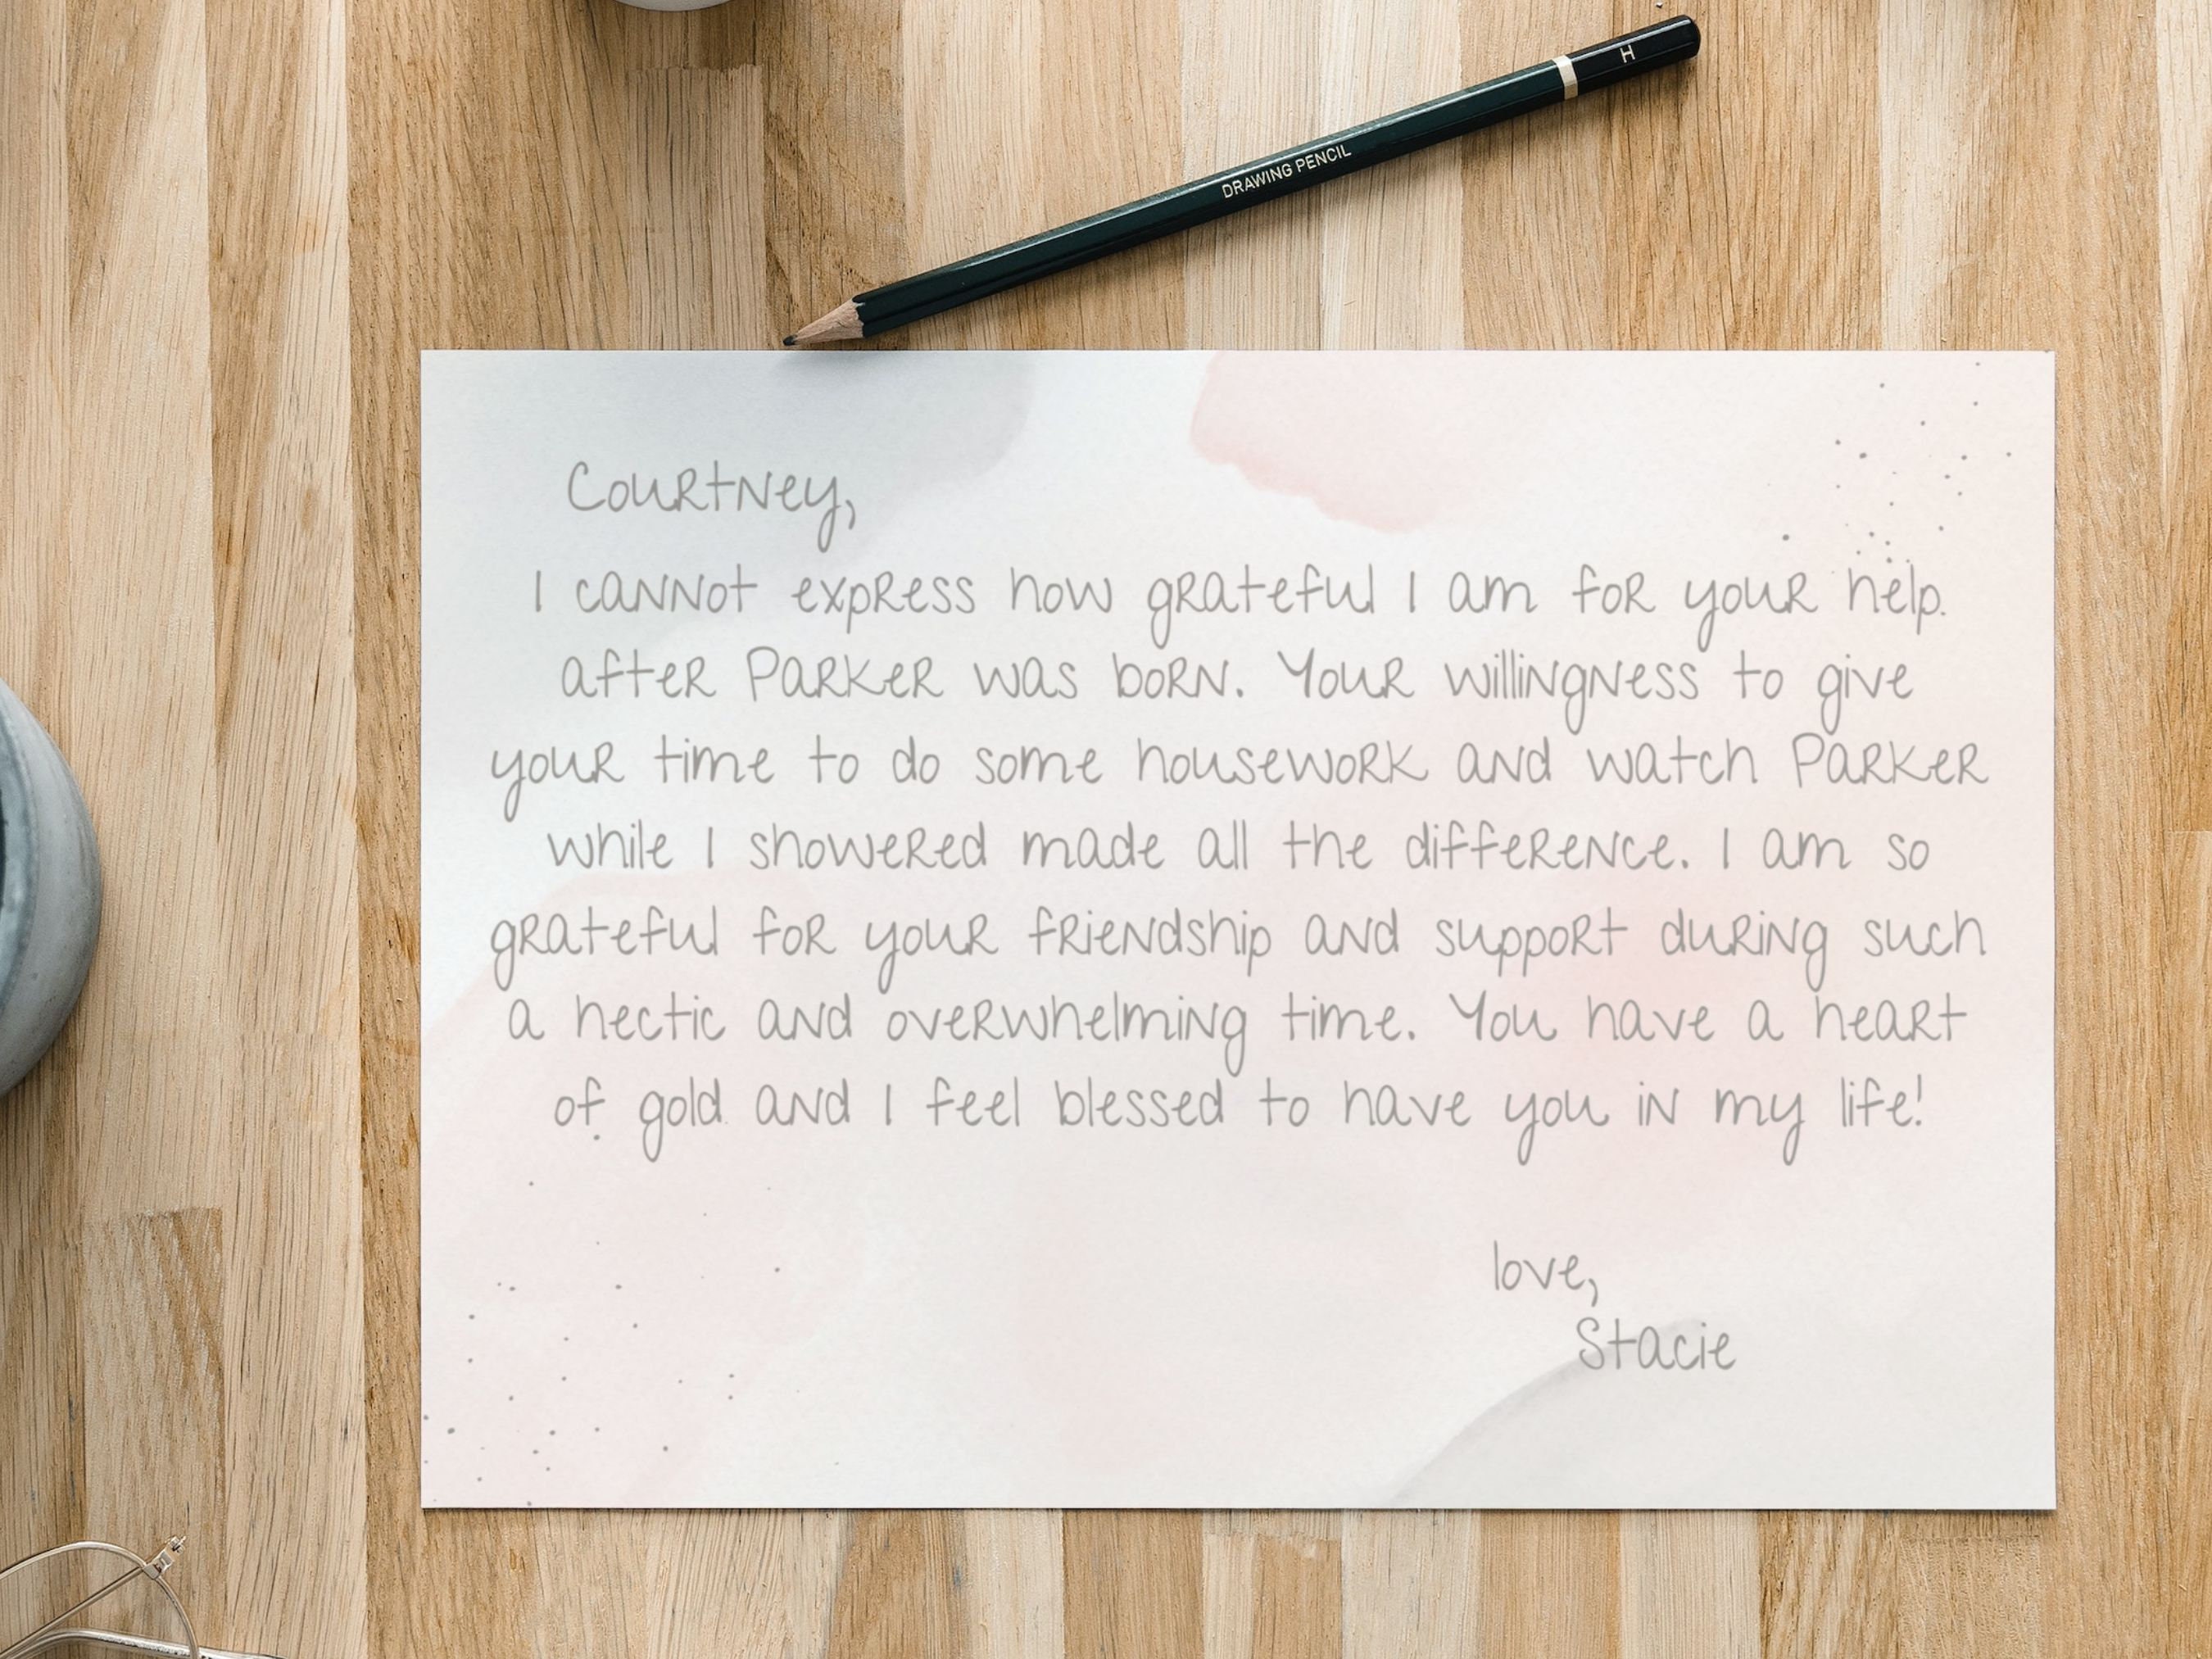 H
DRAWING PENCIL
Courtney,
I cannot express how grateful I am for your help
after Parker was born. Your willingness to give
your time to do some housework and watch Parker
while I showered made all the difference. I am so
grateful for your friendship and support during such
a hectic and overwhelming time. You have a heart
of gold and I feel blessed to have you in my life!
love,
Stacie